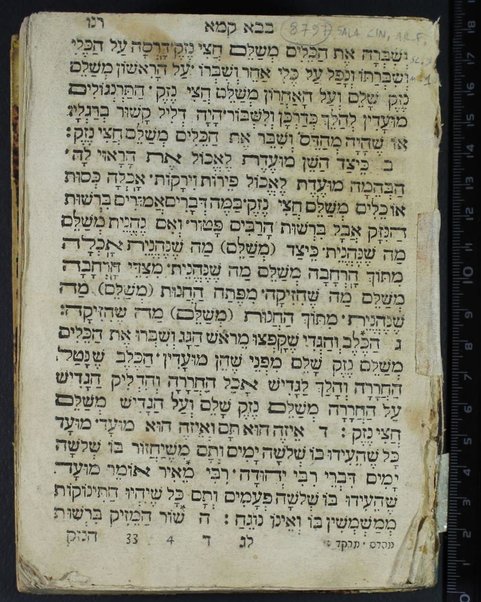 רנו בבא קמא (8797) SALA CIN. A.R.F.
ושברה את הכלים משלם חצי נזק דרסה על הכלי
ושברתו ונפל על כלי אחר ושברו על הראשון משלם
נזק שלם ועל האחרון משלם חצי נזק התרנגולים
מועדין להלך כדרכן ולשבור היה דליל קשור ברגליו
או שהיה מהדס ושבר את הכלים משלם חצי נזק:
ב כיצד השן מועדת לאכול את הראוי לה
הבהמה מועדת לאכול פירות וירקות אכלה כסות
או כלים משלם חצי נזק במה דברים אמורים ברשות
הנזק אבל ברשות הרבים פטור ואם נהנית משלם
מה שנהנית כיצד (משלם) מה שנהנית אכלה
מתוך הרחבה משלם מה שנהנית מצדי הרחבה
משלם מה שהזיקה מפתח החנות (משלם) מה
שנהנית מתוך החנות (משלם) מה שהזיקה:
ג הכלב והגדי שקפצו מראש הגג ושברו את הכלים
משלם נזק שלם מפני שהן מועדין הכלב שנטל
החררה והלך לגדיש אכל החררה והדליק הגדיש
על החררה משלם נזק שלם ועל הגדיש משלם
חצי נזק: ד איזה הוא תם ואיזה הוא מועד מועד
כל שהעידו בו שלשה ימים ותם משיחזור בו שלשה
ימים דברי רבי יהודה רבי מאיר אומר מועד
שהעידו בו שלשה פעמים ותם כל שיהיו התינוקות
ממשמשין בו ואינו נוגח: ה שור המזיק ברשות
מהדס מרקד: לג ד 4 33 הנזק